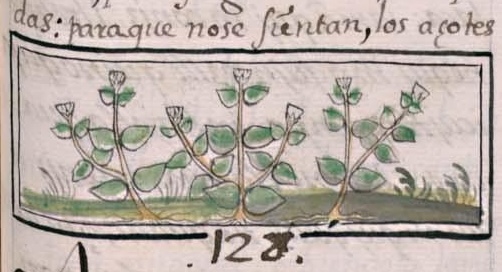 das: paraque nose siẽntan, los açotes
.128.